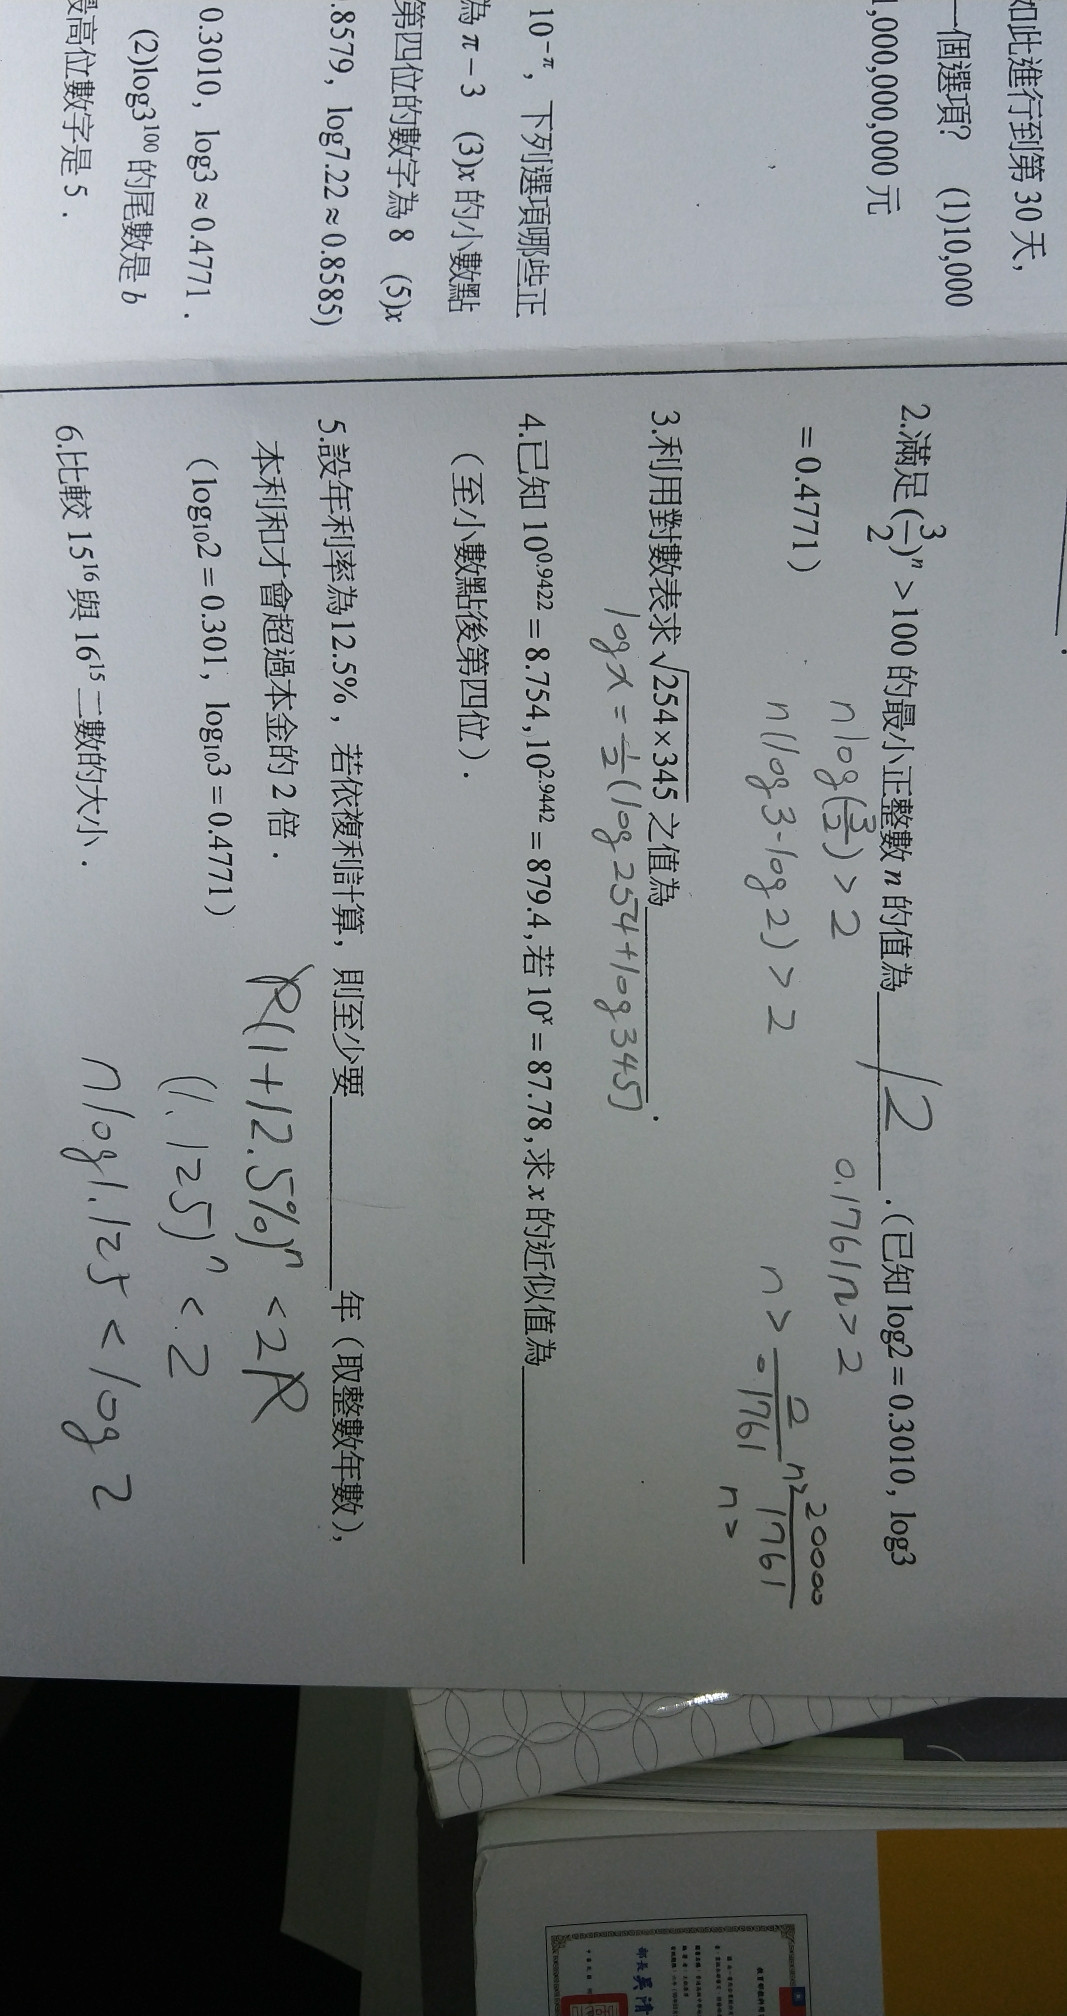 如此進行到第 30 天，
一個選項？ (1)10,000
1,000,000,000 元
10^{-π}，下列選項哪些正
為 π－3 (3)x 的小數點
第四位的數字為 8 (5)x
.8579，log7.22≈0.8585)
0.3010，log3≈0.4771．
(2)log3^{100} 的尾數是 b
最高位數字是 5．
2.滿足 (3/2)^n >100 的最小正整數 n 的值為 12 ．(已知 log2＝0.3010，log3
＝0.4771)
n log(3/2) > 2
0.1761n > 2
n(log3-log2) > 2
n > 2/0.1761
n> 20000/1761
n>
3.利用對數表求 √254×345 之值為 ．
logx = 1/2(log254+log345)
4.已知 10^{0.9422}＝8.754，10^{2.9442}＝879.4，若 10^x＝87.78，求 x 的近似值為
(至小數點後第四位)．
5.設年利率為12.5%，若依複利計算，則至少要 年 (取整數年數)，
本利和才會超過本金的 2 倍．
(log₁₀2＝0.301，log₁₀3＝0.4771)
P(1+12.5%)^n < 2P
(1.125)^n < 2
n log1.125 < log2
6.比較 15^{16} 與 16^{15} 二數的大小．
部長 吳清